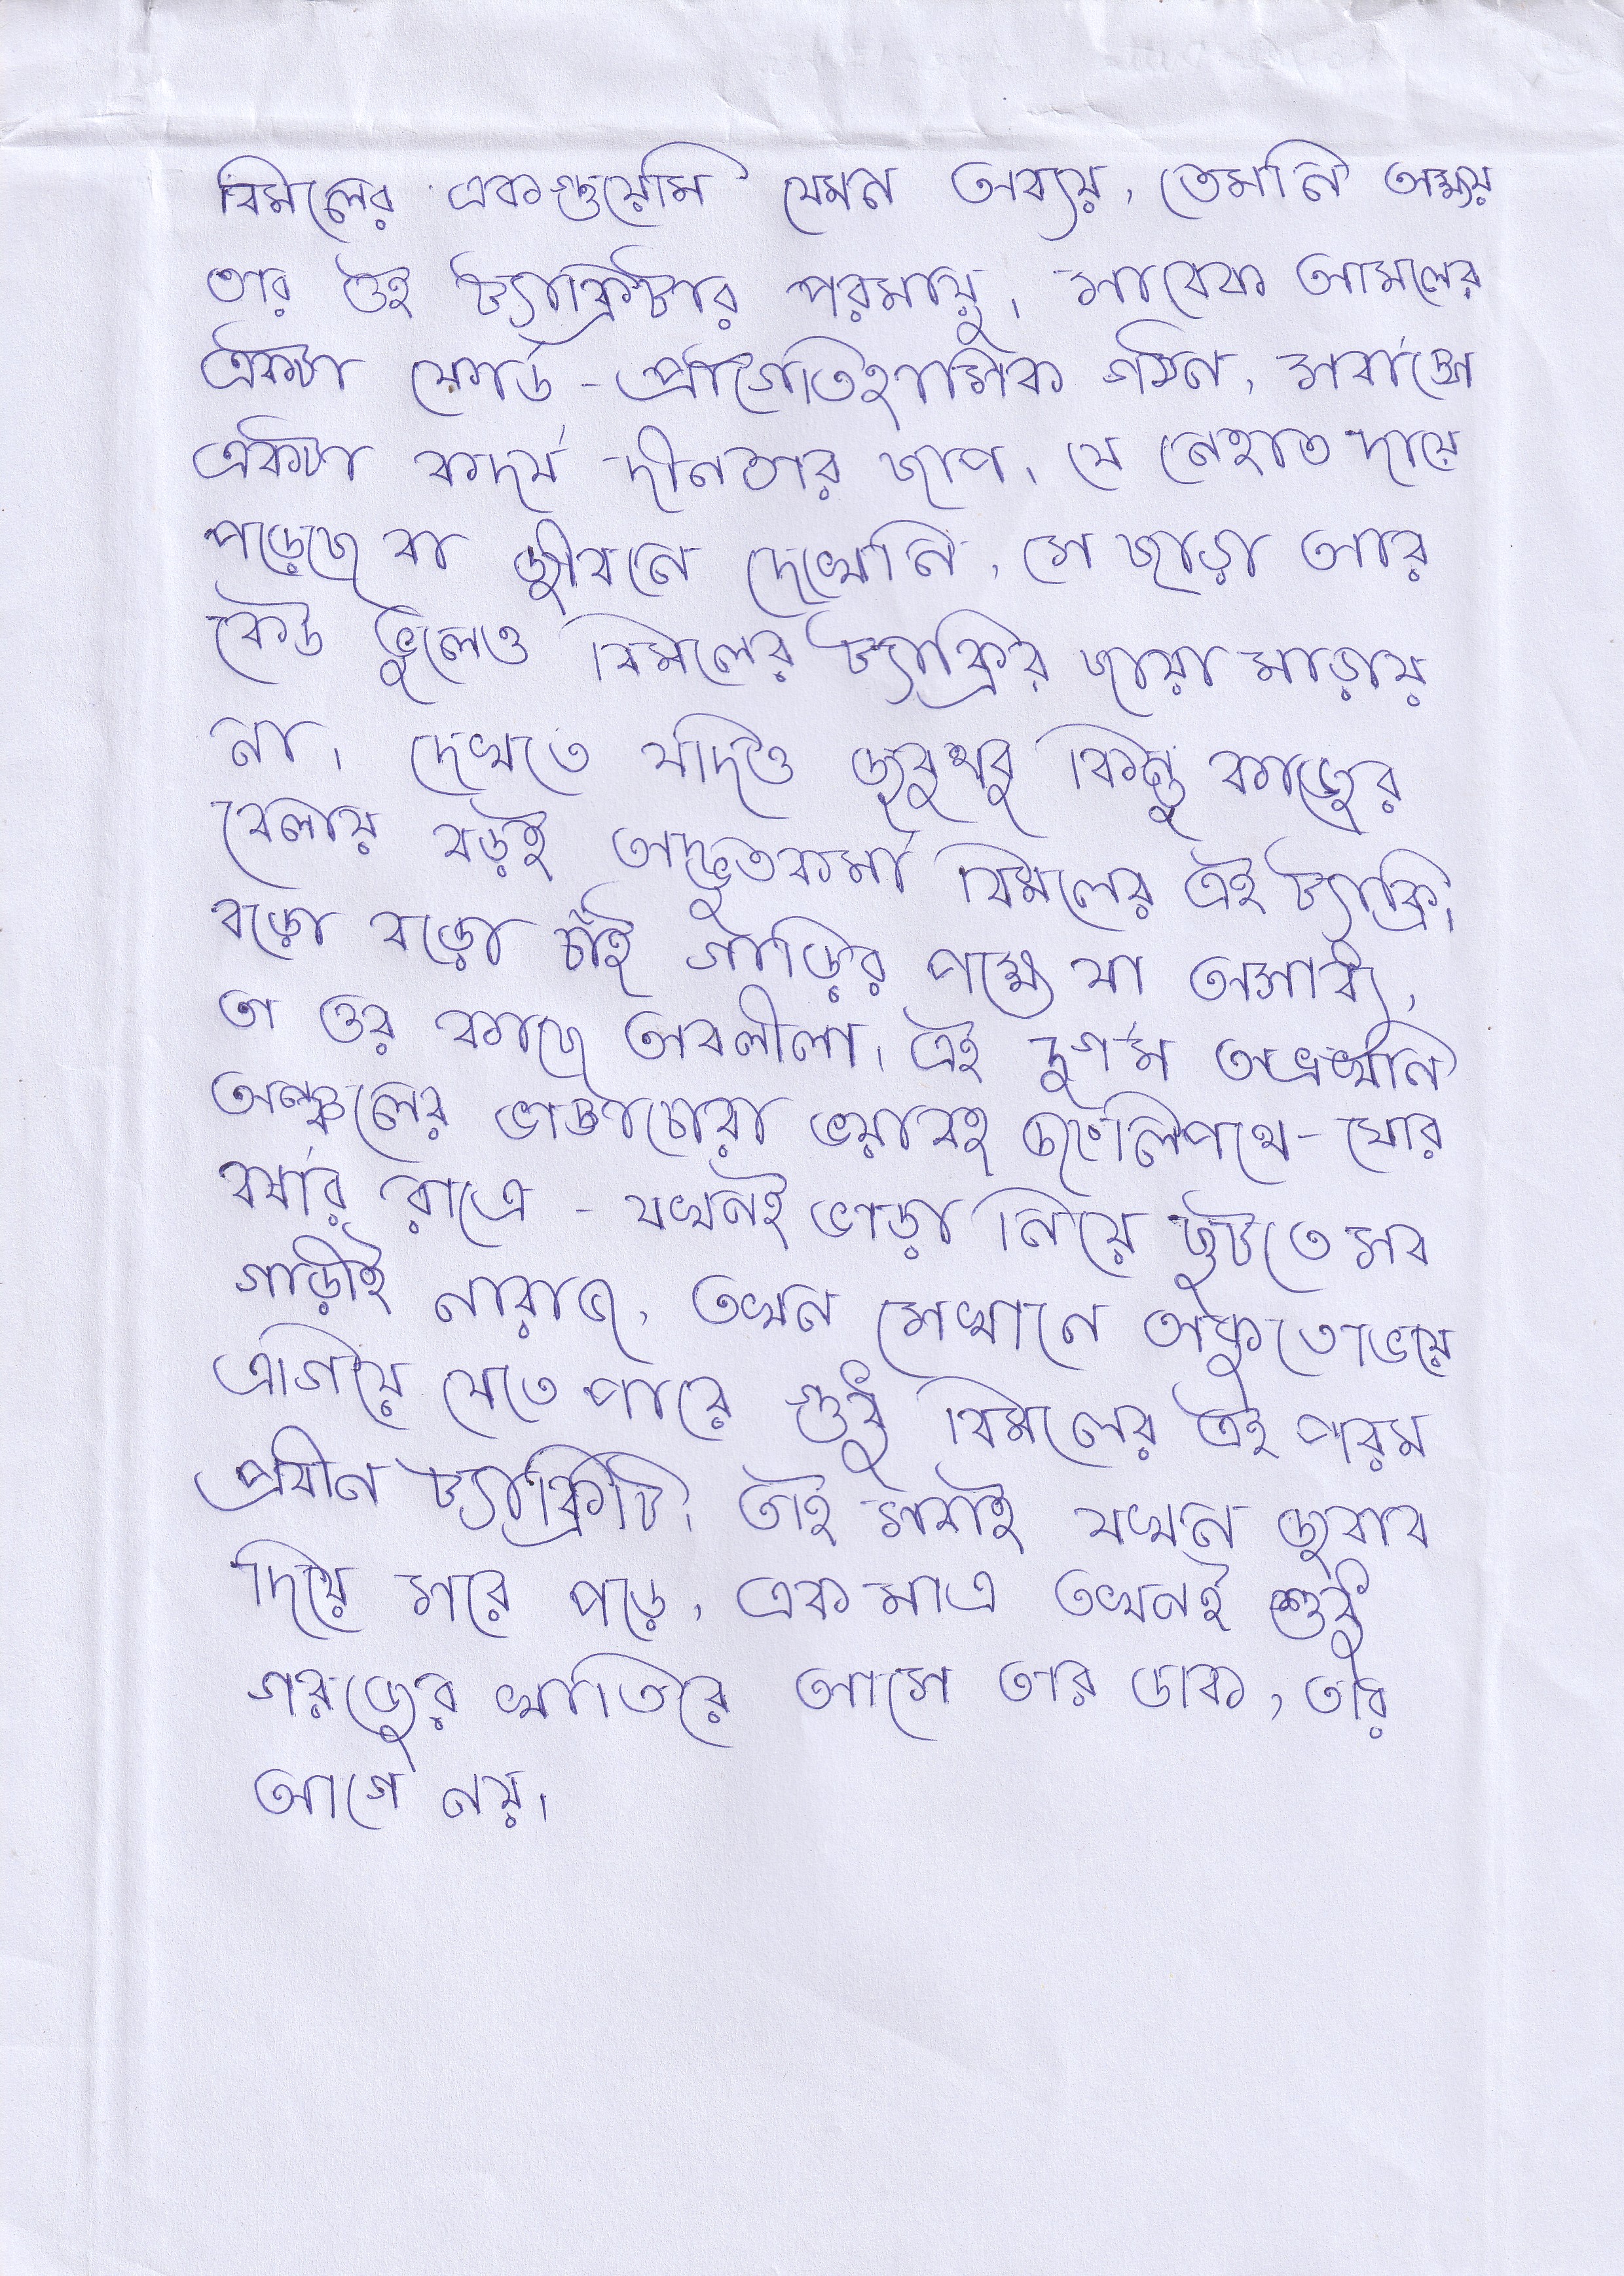 বিমলের একগুয়েমি যেমন অব্যয়, তেমনি অক্ষয়
তার ওই ট্যাক্সিটার পরমায়ু। সাবেক আমলের
একটা ফোর্ড - প্রাগৈতিহাসিক গঠন, সর্বাঙ্গে
একটা কদর্য দীনতার ছাপ। যে নেহাত দায়ে
পড়েছে বা জীবনে দেখেনি, সে ছাড়া আর
কেউ ভুলেও বিমলের ট্যাক্সির ছায়া মাড়ায়
না। দেখতে যদিও জুবুথুবু কিন্তু কাজের
বেলায় বড়ই অদ্ভুতকর্মা বিমলের এই ট্যাক্সি।
বড়ো বড়ো চাঁই গাড়ির পক্ষে যা অসাধ্য,
তা ওর কাছে অবলীলা। এই দুর্গম অভ্রখনি
অঞ্চলের ভাঙাচোরা ভয়াবহ জংলিপথে - ঘোর
বর্ষার রাত্রে - যখনই ভাড়া নিয়ে ছুটতে সব
গাড়ীই নারাজ, তখন সেখানে অকুতোভয়ে
এগিয়ে যেতে পারে শুধু বিমলের এই পরম
প্রবীন ট্যাক্সিটি। তাই সবাই যখন জবাব
দিয়ে সরে পড়ে, একমাত্র তখনই শুধু
গরজের খাতিরে আসে তার ডাক, তার
আগে নয়।